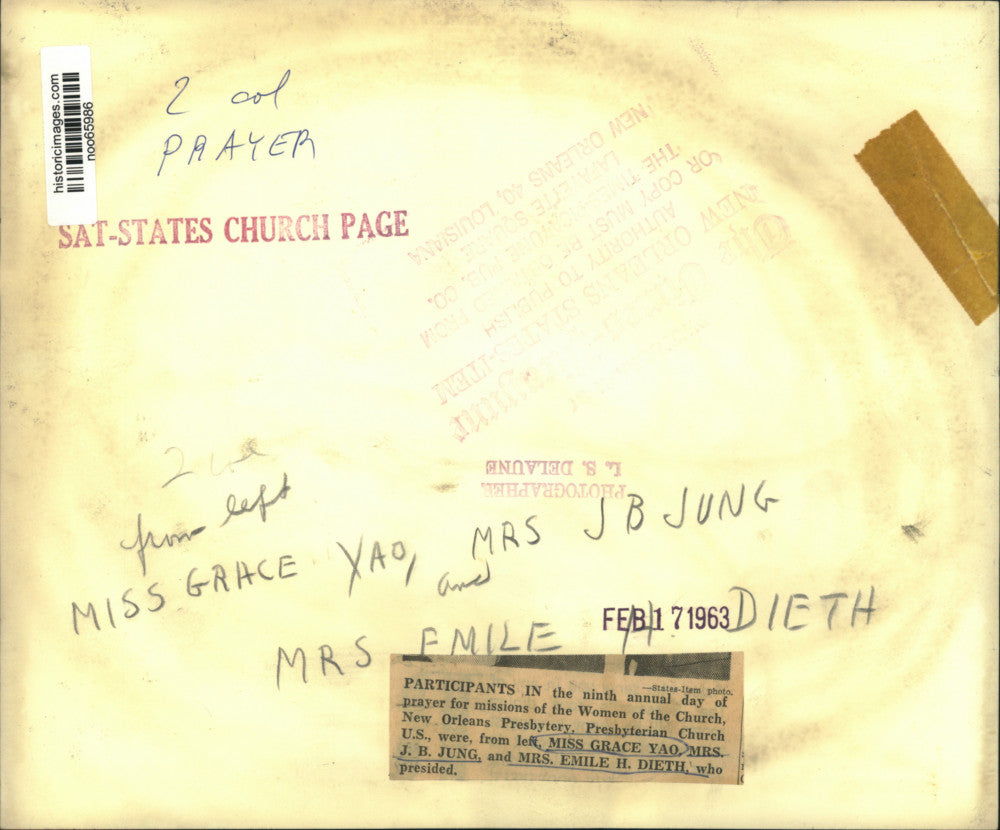 historicimages.com
noo65986
2 col
PRAYER
SAT-STATES CHURCH PAGE
The
NEW ORLEANS STATES-ITEM
AUTHORITY TO PUBLISH
OR COPY MUST BE OBTAINED FROM
THE TIMES PUB. CO.
LAFAYETTE SQUARE
NEW ORLEANS 40, LOUISIANA
PHOTOGRAPHER
L. S. DELAUNE
2 col
from left
MISS GRACE YAO, MRS J B JUNG
and
MRS EMILE H DIETH
FEB 17 1963
—States-Item photo.
PARTICIPANTS IN the ninth annual day of
prayer for missions of the Women of the Church,
New Orleans Presbytery, Presbyterian Church
U.S., were, from left, MISS GRACE YAO, MRS.
J. B. JUNG, and MRS. EMILE H. DIETH, who
presided.